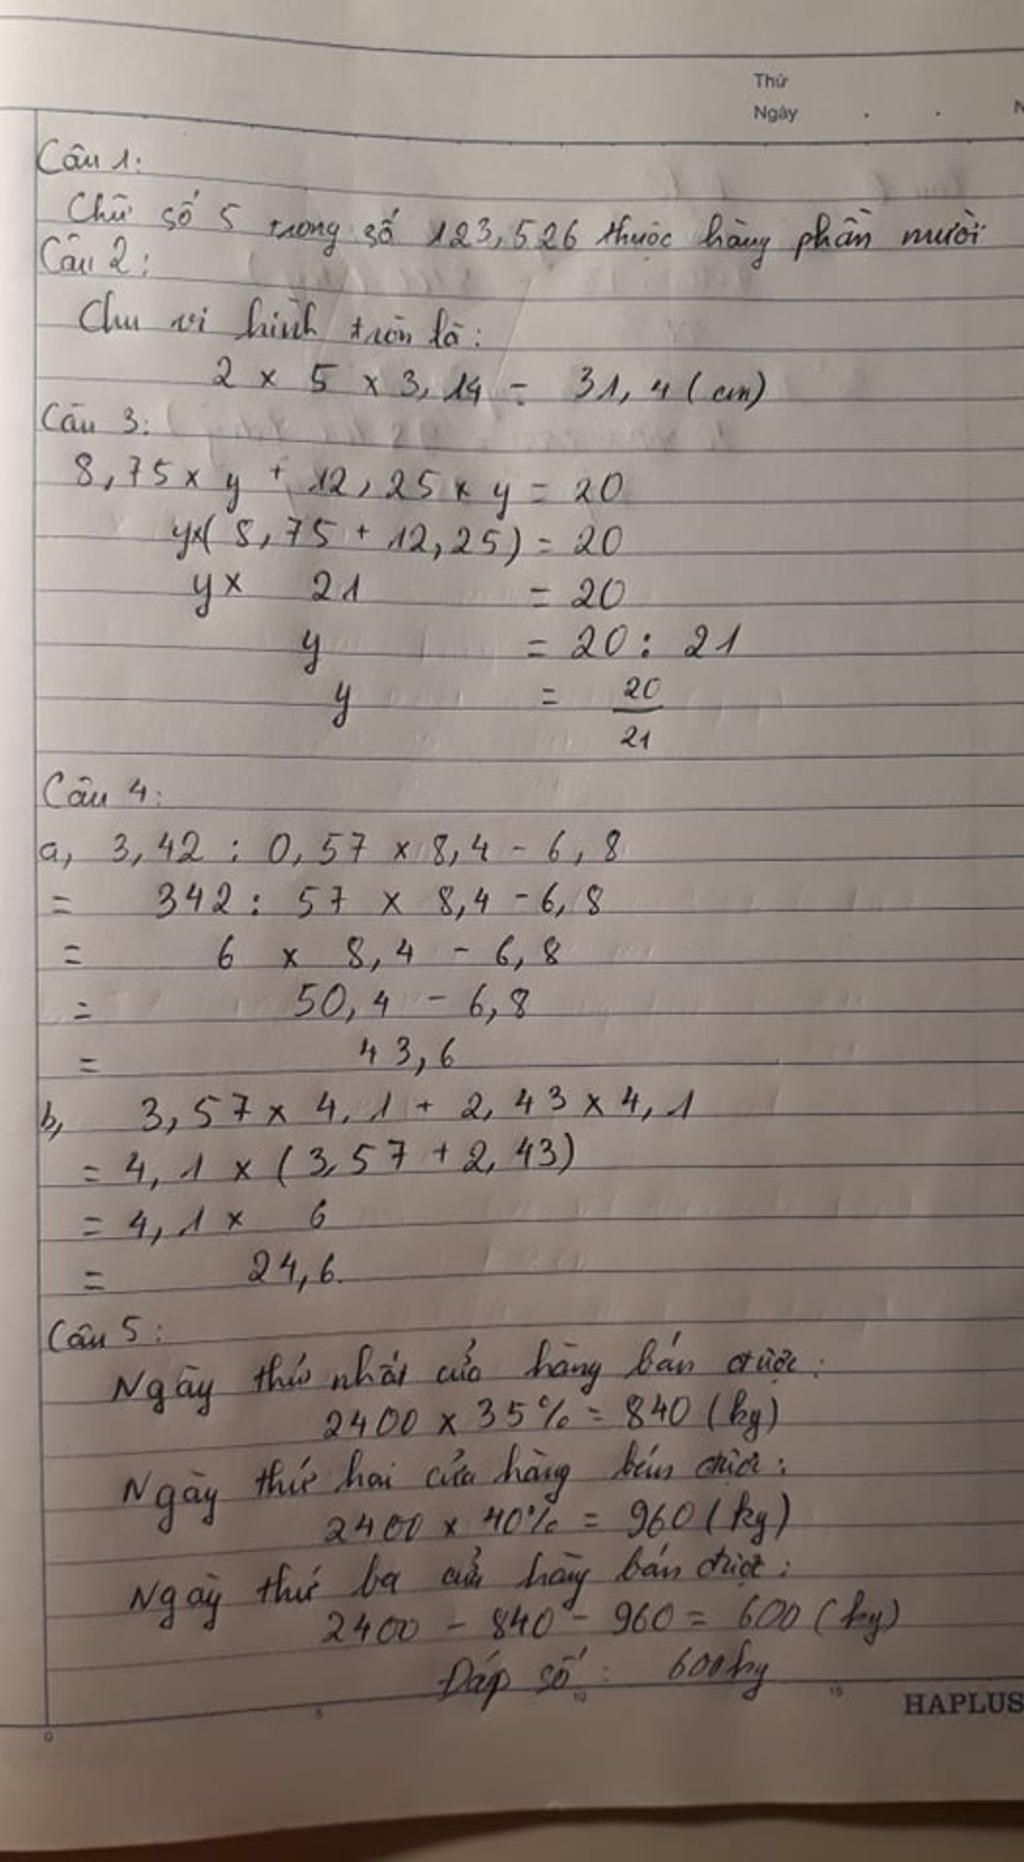 Thứ
Ngày
Câu 1:
Chữ số 5 trong số 123,526 thuộc hàng phần mười
Câu 2:
Chu vi hình tròn là:
2 x 5 x 3,14 = 31,4 (cm)
Câu 3:
8,75 x y + 12,25 x y = 20
y x ( 8,75 + 12,25) = 20
y x 21 = 20
y = 20 : 21
y = 20/21
Câu 4:
a, 3,42 : 0,57 x 8,4 - 6,8
= 342 : 57 x 8,4 - 6,8
= 6 x 8,4 - 6,8
= 50,4 - 6,8
= 43,6
b, 3,57 x 4,1 + 2,43 x 4,1
= 4,1 x (3,57 + 2,43)
= 4,1 x 6
= 24,6.
Câu 5:
Ngày thứ nhất cửa hàng bán được:
2400 x 35% = 840 (kg)
Ngày thứ hai cửa hàng bán được:
2400 x 40% = 960 (kg)
Ngày thứ ba cửa hàng bán được:
2400 - 840 - 960 = 600 (kg)
Đáp số: 600kg
0 5 10 15
HAPLUS